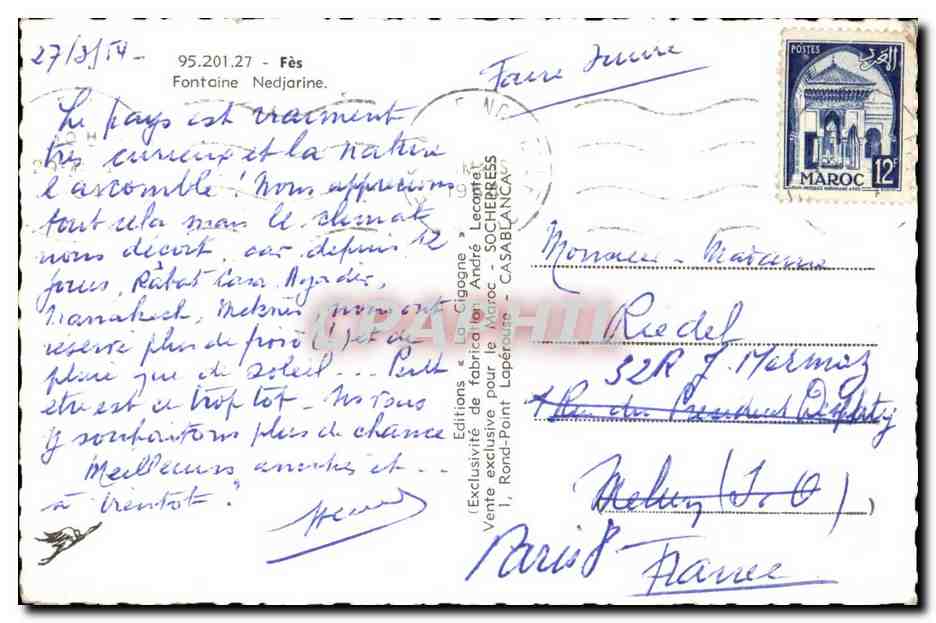 27/3/54-
95.201.27 - Fès
Fontaine Nedjarine.
Le pays est vraiment
très curieux et la nature
l'a comblé! Nous apprécions
tout cela mais le climat
nous déçoit, car depuis 12
jours, Râbat Casa Agadir,
Marrakech, Meknès nous ont
réservé plus de froid (!) et de
pluie que de soleil... Peut
être est ce trop tôt -
y souhaitons plus de chance
Meilleures amitiés et...
à bientôt.
Editions « La Cigogne »
(Exclusivité de fabrication André Leconte)
Vente exclusive pour le Maroc - SOCHEPRESS
1, Rond-Point Lapérouse - CASABLANCA
Faire Suivre
POSTES
البريد
MAROC
12F
Monsieur - Madame
Riedel
32 R J. Mermoz
Rue du Président
Melun (S.O),
Paris 8
France
CPARAMA